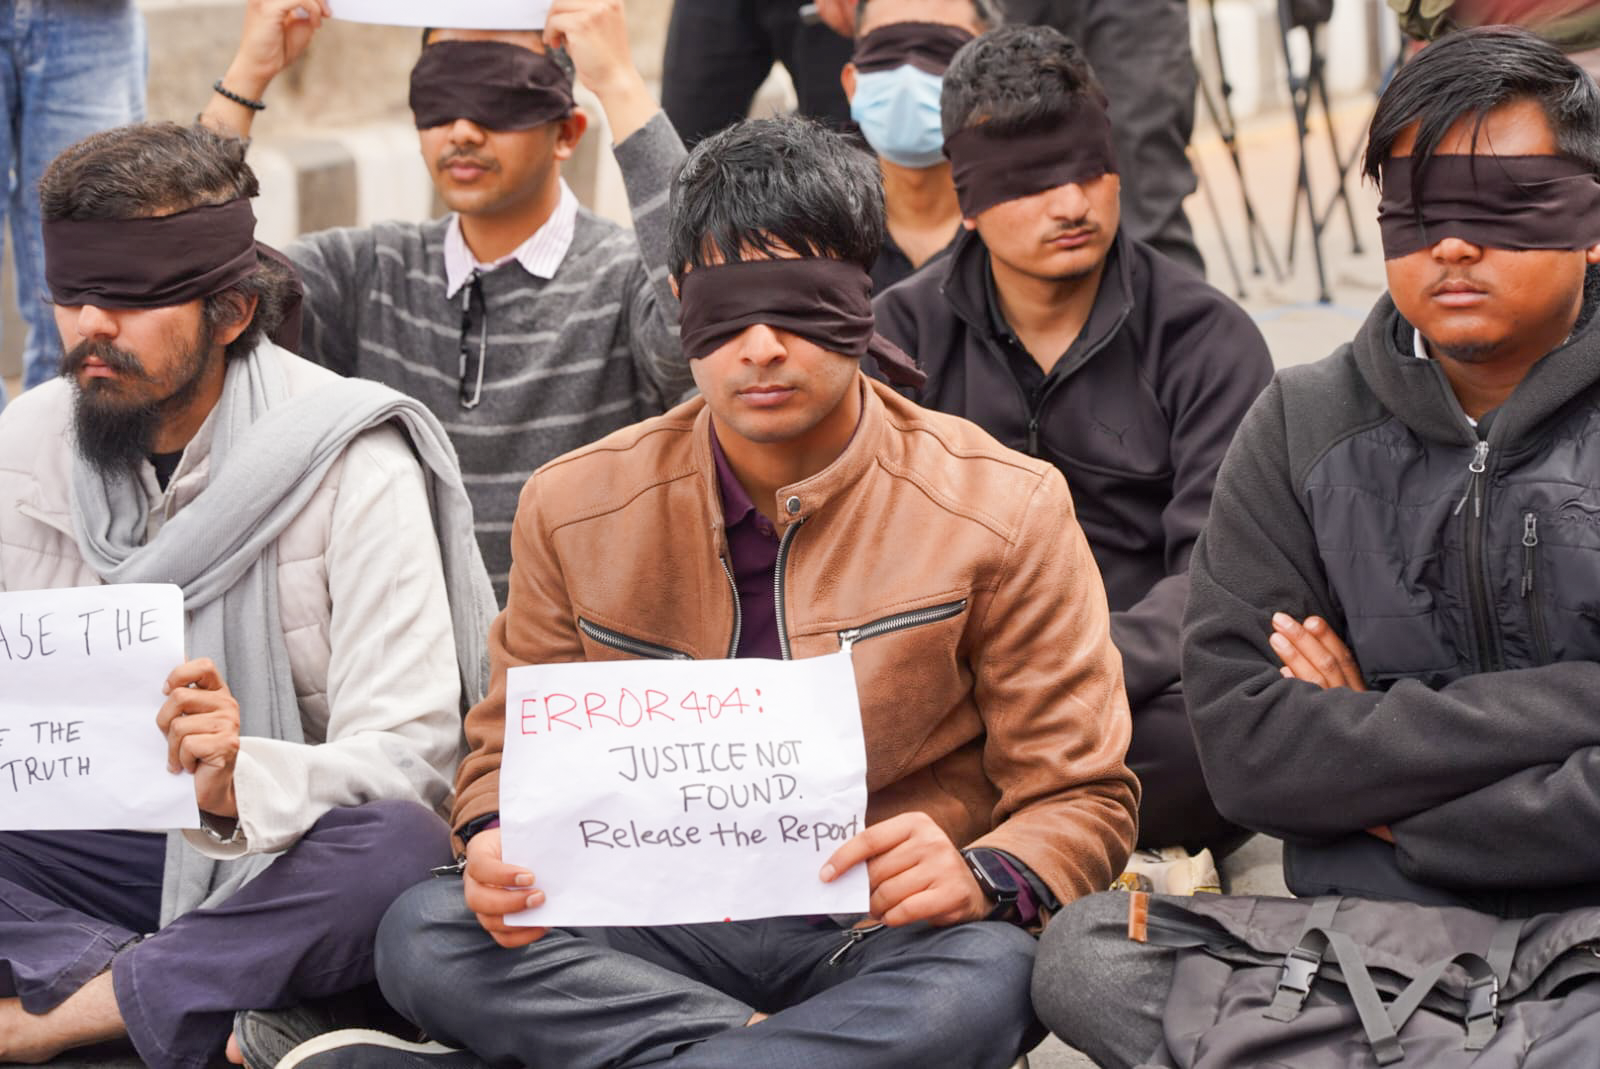 THE
THE
TRUTH
ERROR 404:
JUSTICE NOT
FOUND.
Release the Report